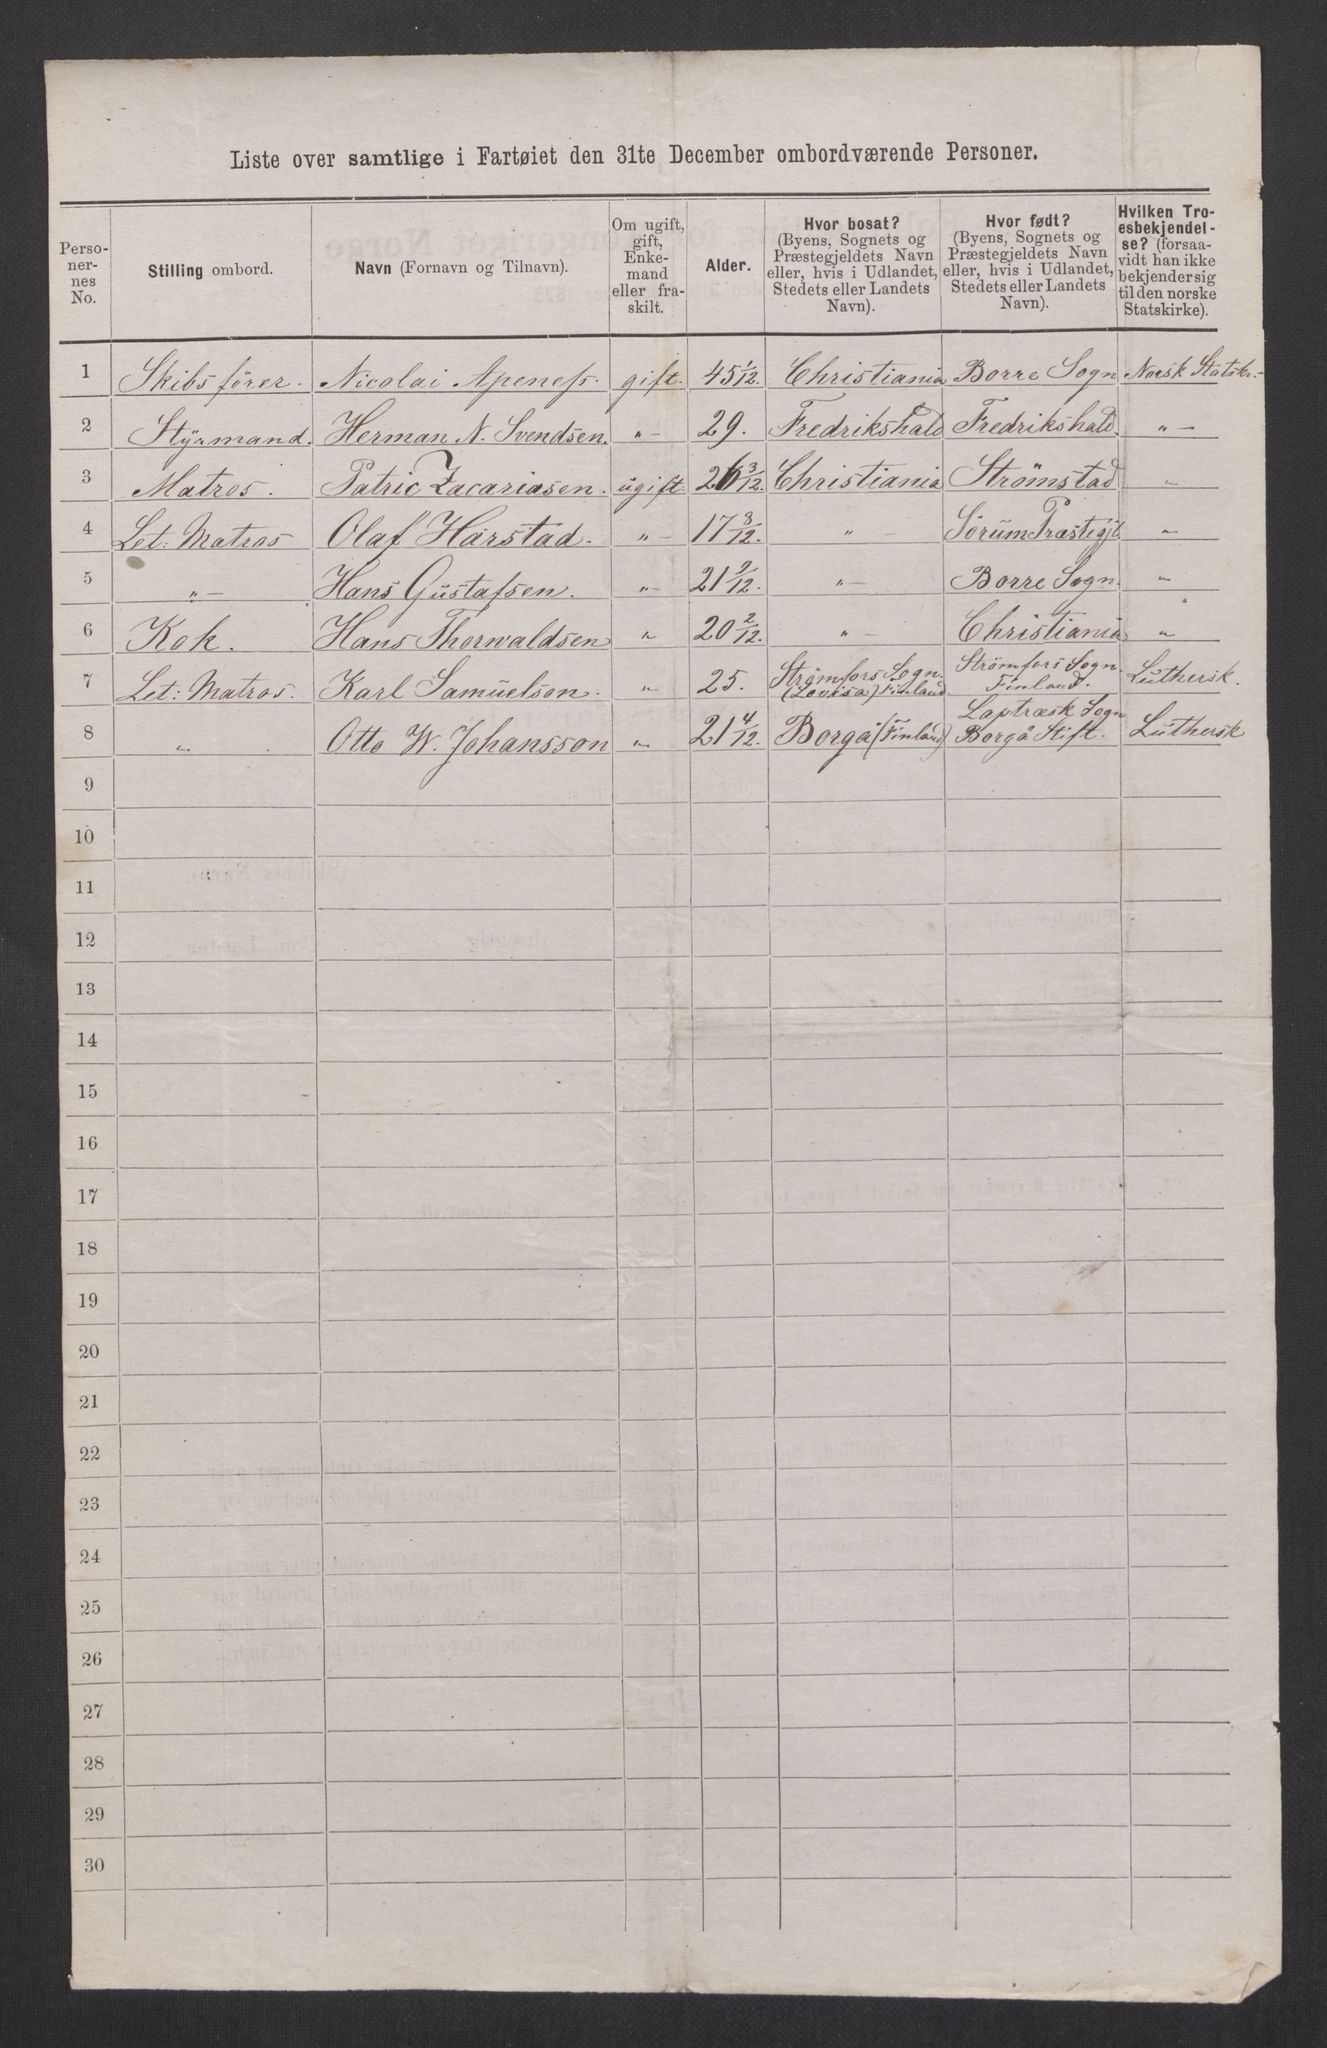 Liste over samtlige i Fartøiet den 31te December ombordværende Personer.
Personernes No. | Stilling ombord. | Navn (Fornavn og Tilnavn). | Om ugift, gift, Enkemand eller fraskilt. | Alder. | Hvor bosat? (Byens, Sognets og Præstegjeldets Navn eller, hvis i Udlandet, Stedets eller Landets Navn). | Hvor født? (Byens, Sognets og Præstegjeldets Navn eller, hvis i Udlandet, Stedets eller Landets Navn). | Hvilken Troesbekjendelse? (forsaavidt han ikke bekjender sig til den norske Statskirke).
1 Skibsfører. Nicolai Apeness. gift. 45 1/12. Christiania Borre Sogn Norsk Statskr.
2 Styrmand. Herman N. Svendsen. "– 29. Fredrikshald Fredrikshald. "–
3 Matros. Patric Zacariasen. ugift 26 3/12. Christiania Strömstad "
4 Let: Matros Olaf Harstad. "– 17 8/12. "– Sörum Præstegjl. "
5 "– Hans Gustafsen. "– 21 9/12. "– Borre Sogn. "
6 Kok. Hans Thorwaldsen " 20 2/12. "– Christiania "
7 Let: Matros. Karl Samuelson. " 25. Strömfors Sogn. (Lovisa) Finland Strömfors Sogn. Finland. Luthersk.
8 " Otto W. Johansson " 21 4/12. Borgå (Finland) Laptræsk Sogn Borgå Stift. Luthersk
9
10
11
12
13
14
15
16
17
18
19
20
21
22
23
24
25
26
27
28
29
30